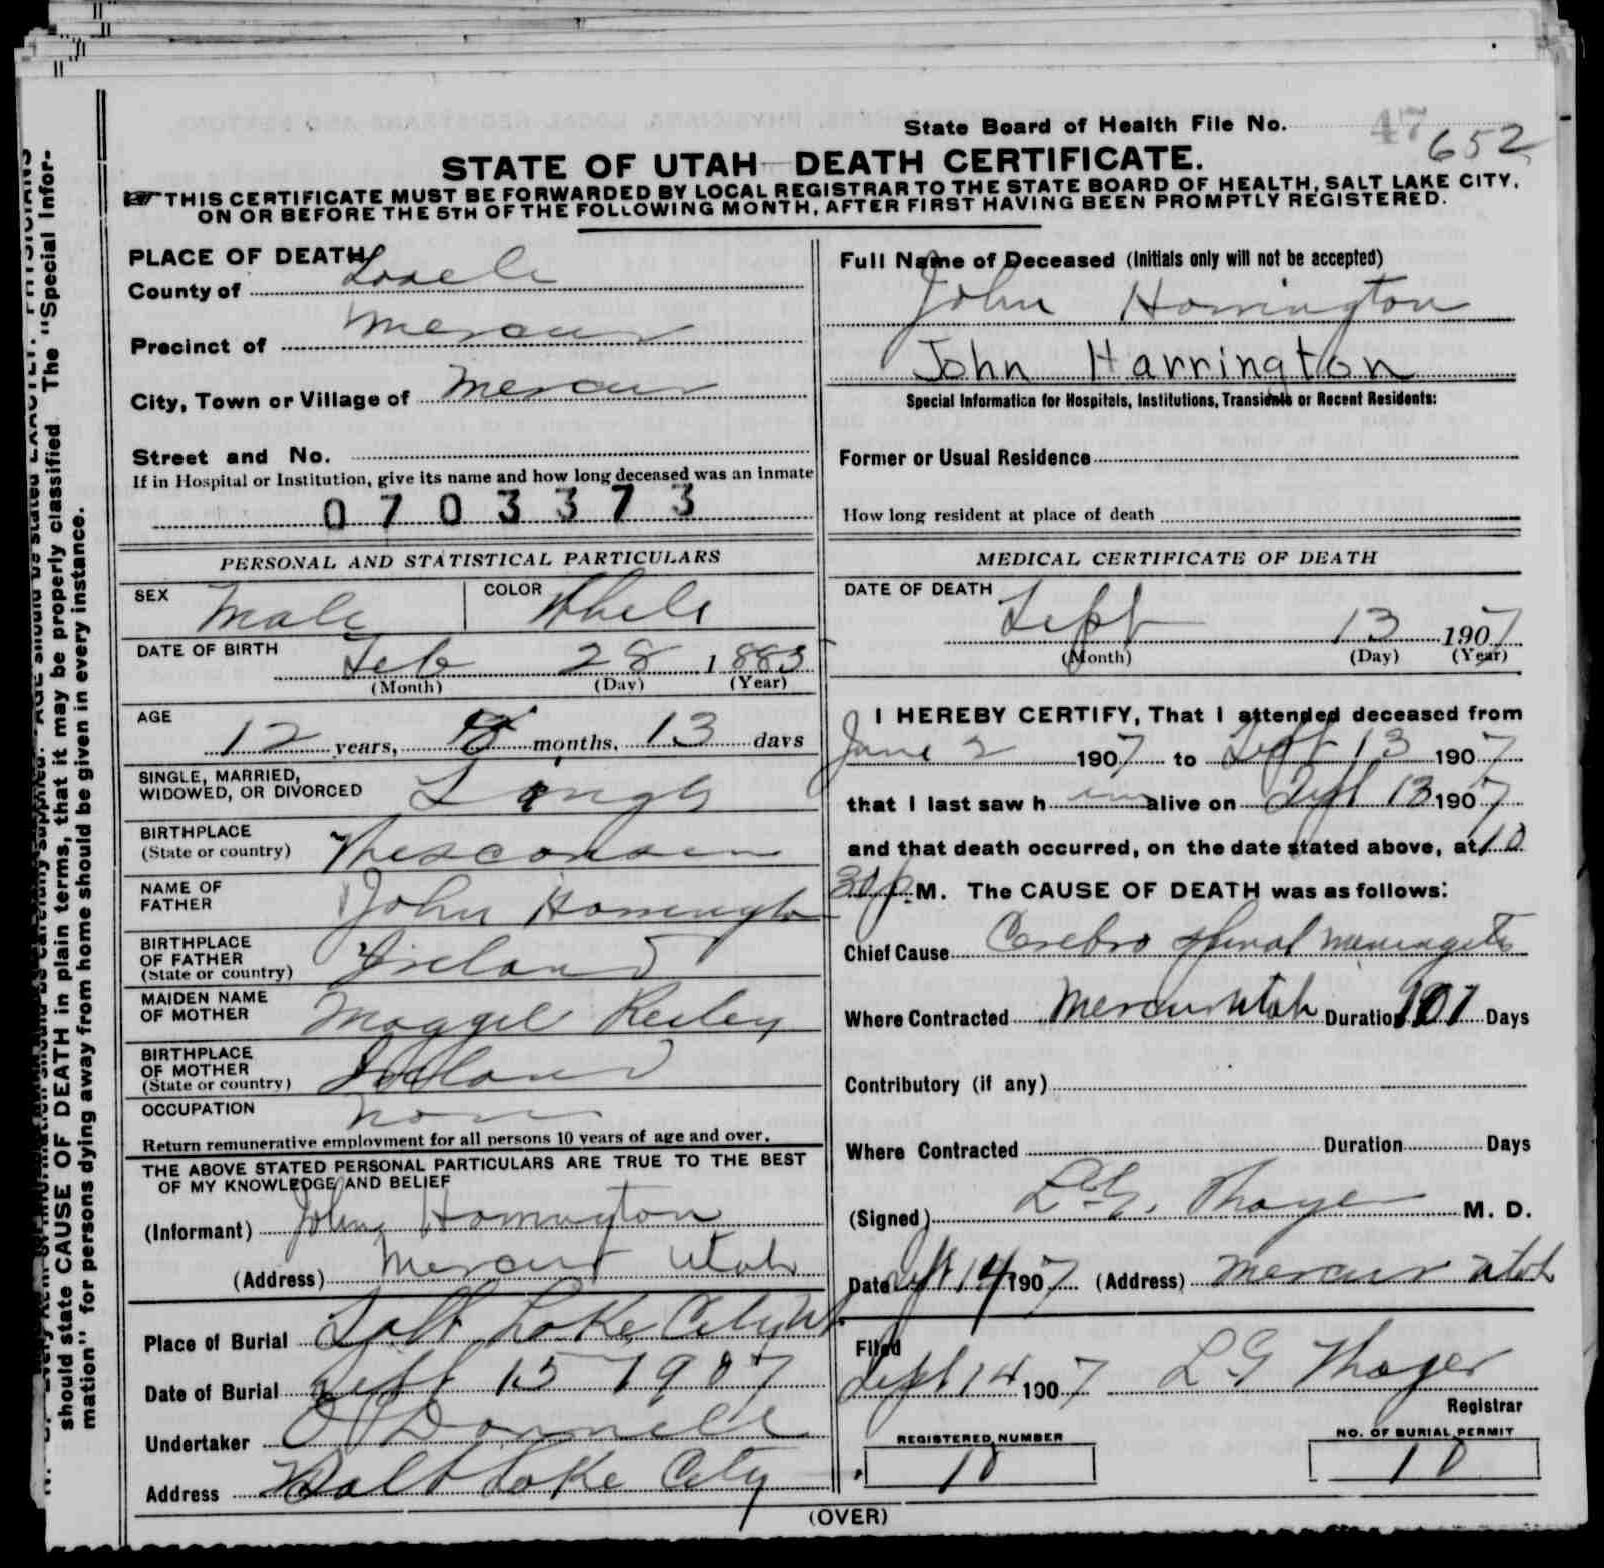 State Board of Health File No. 47 652
STATE OF UTAH—DEATH CERTIFICATE.
THIS CERTIFICATE MUST BE FORWARDED BY LOCAL REGISTRAR TO THE STATE BOARD OF HEALTH, SALT LAKE CITY,
ON OR BEFORE THE 5TH OF THE FOLLOWING MONTH, AFTER FIRST HAVING BEEN PROMPTLY REGISTERED.
PLACE OF DEATH
County of
Precinct of Mercur
City, Town or Village of Mercur
Street and No.
If in Hospital or Institution, give its name and how long deceased was an inmate
0703373
Full Name of Deceased (Initials only will not be accepted)
John Harrington
John Harrington
Special Information for Hospitals, Institutions, Transients or Recent Residents:
Former or Usual Residence
How long resident at place of death
PERSONAL AND STATISTICAL PARTICULARS
SEX Male COLOR White
DATE OF BIRTH Feb 28 1885
(Month) (Day) (Year)
AGE 12 years, months, 13 days
SINGLE, MARRIED,
WIDOWED, OR DIVORCED Single
BIRTHPLACE
(State or country) Wisconsin
NAME OF
FATHER John Harrington
BIRTHPLACE
OF FATHER
(State or country) Ireland
MAIDEN NAME
OF MOTHER Maggie Reiley
BIRTHPLACE
OF MOTHER
(State or country) Ireland
OCCUPATION None
Return remunerative employment for all persons 10 years of age and over.
THE ABOVE STATED PERSONAL PARTICULARS ARE TRUE TO THE BEST
OF MY KNOWLEDGE AND BELIEF
(Informant) John Harrington
(Address) Mercur Utah
Place of Burial Salt Lake City Ut
Date of Burial Sept 15 1907
Undertaker O'Donnell
Address Salt Lake City
MEDICAL CERTIFICATE OF DEATH
DATE OF DEATH
Sept 13 1907
(Month) (Day) (Year)
I HEREBY CERTIFY, That I attended deceased from
June 2 1907 to Sept 13 1907
that I last saw him alive on Sept 13 1907
and that death occurred, on the date stated above, at 10
30 p.M. The CAUSE OF DEATH was as follows:
Chief Cause Cerebro spinal meningitis
Where Contracted Mercur Utah Duration 101 Days
Contributory (if any)
Where Contracted Duration Days
(Signed) L.G. Thayer M. D.
Date Sept 14 1907 (Address) Mercur Utah
Filed
Sept 14 1907 L G Thayer
Registrar
REGISTERED NUMBER
10
NO. OF BURIAL PERMIT
10
(OVER)
should state CAUSE OF DEATH in plain terms, that it may be properly classified. The "Special Infor-
mation" for persons dying away from home should be given in every instance.